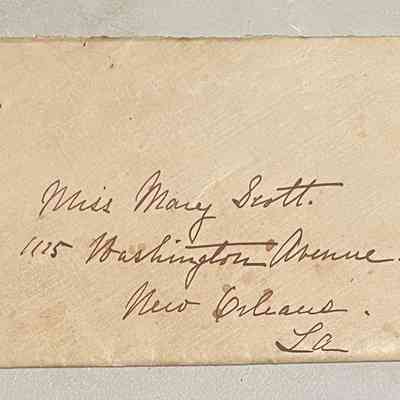 Miss Mary Scott.
1125 Washington Avenue.
New Orleans.
La